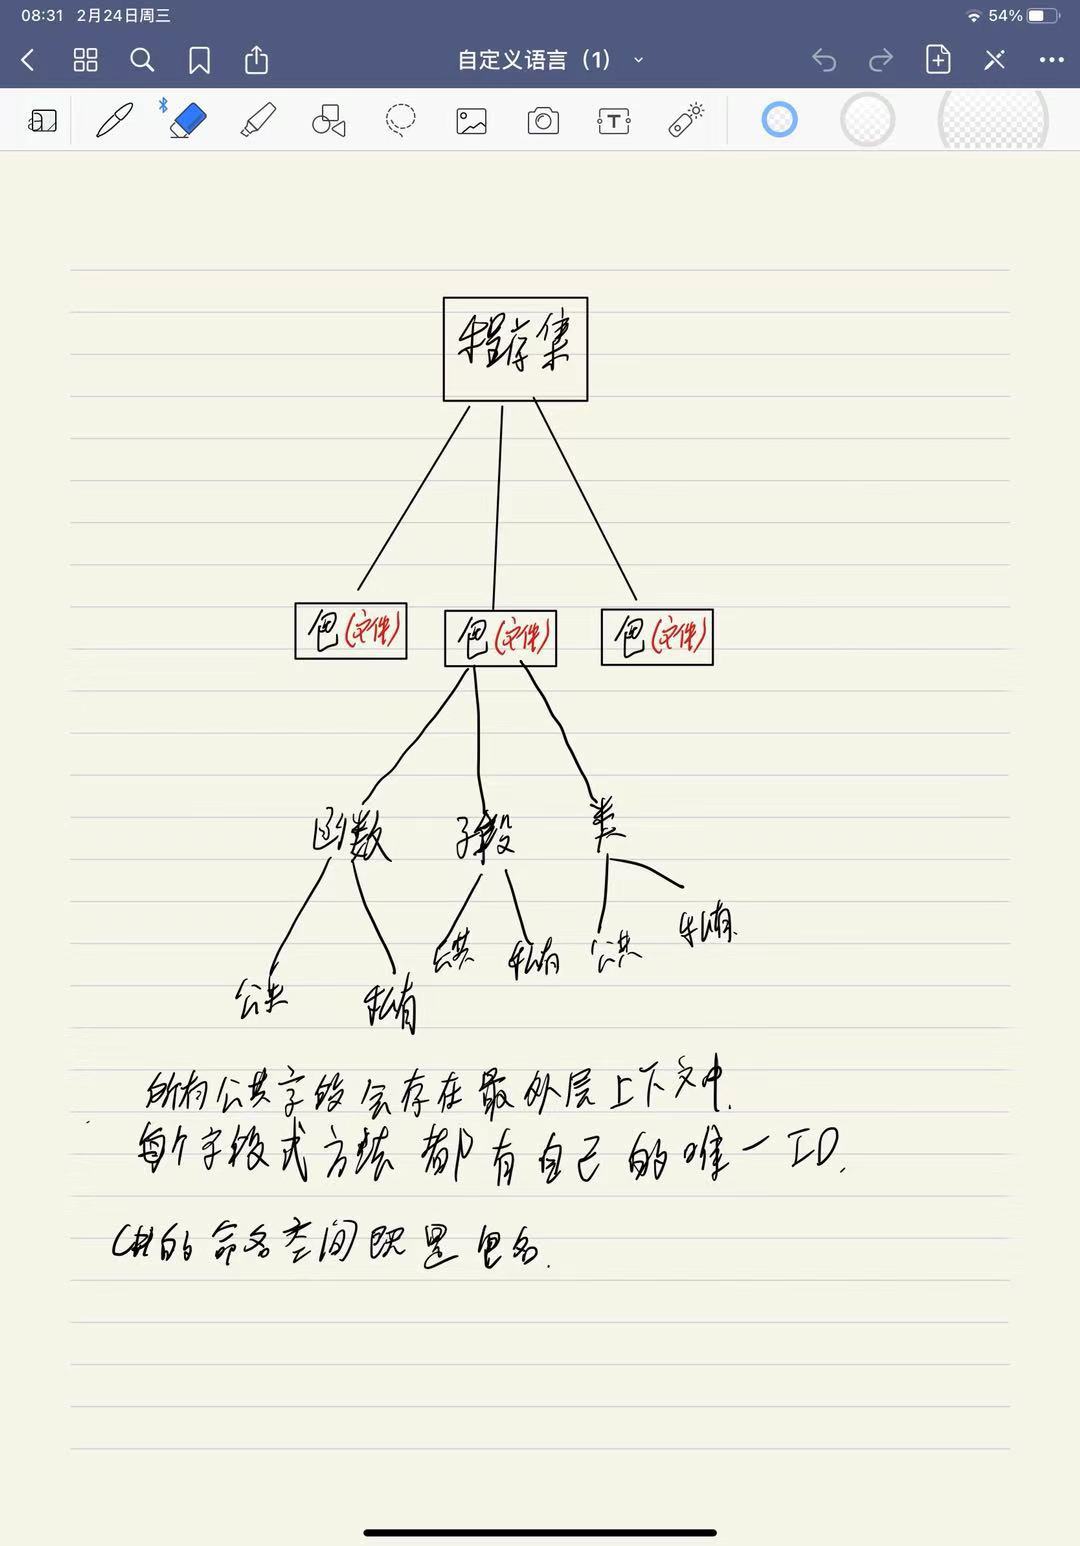 08:31 2月24日周三 54%
自定义语言（1）
T
程序集
包(文件) 包(文件) 包(文件)
函数 字段 类
公共 私有 公共 私有 公共 私有
所有公共字段会存在最外层上下文中.
每个字段或方法都有自己的唯一ID.
C#的命名空间既是包名.